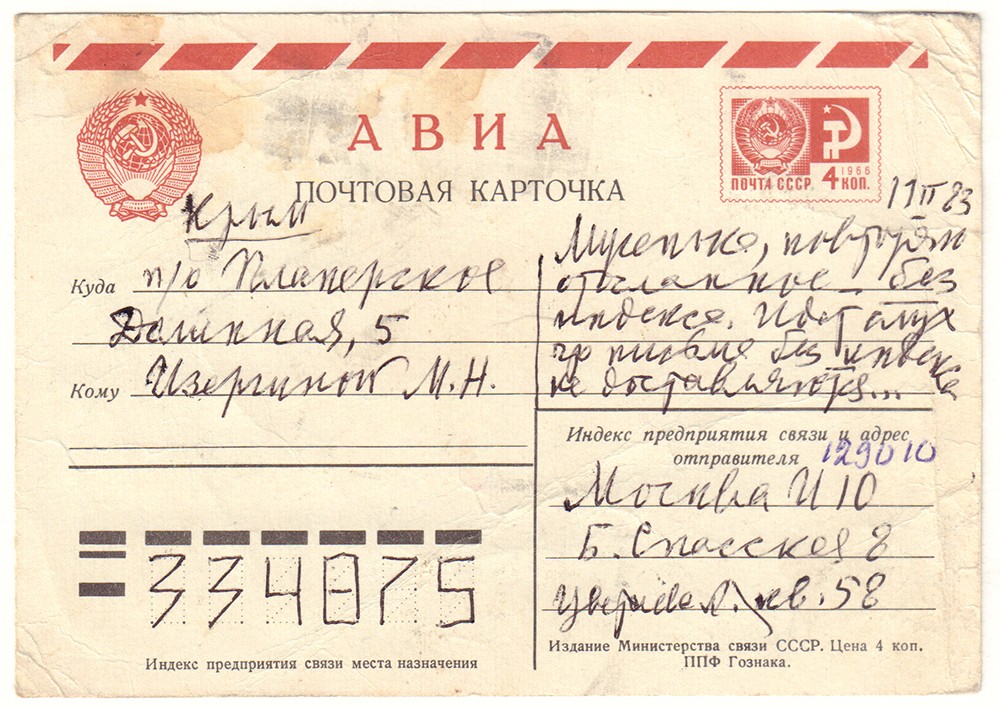 АВИА
ПОЧТОВАЯ КАРТОЧКА
ПОЧТА СССР
1966
4 КОП.
Крым
Куда п/о Планерское
Долинная, 5
Кому Изергиной М.Н.
11 III 83
Мусенька, повторяю
отосланное без
индекса. Идет слух
что письма без индекса
не доставляются...
Индекс предприятия связи и адрес
отправителя 129010
Москва И 10
Б. Спасская 8
кв. 58
334875
Индекс предприятия связи места назначения
Издание Министерства связи СССР. Цена 4 коп.
ППФ Гознака.